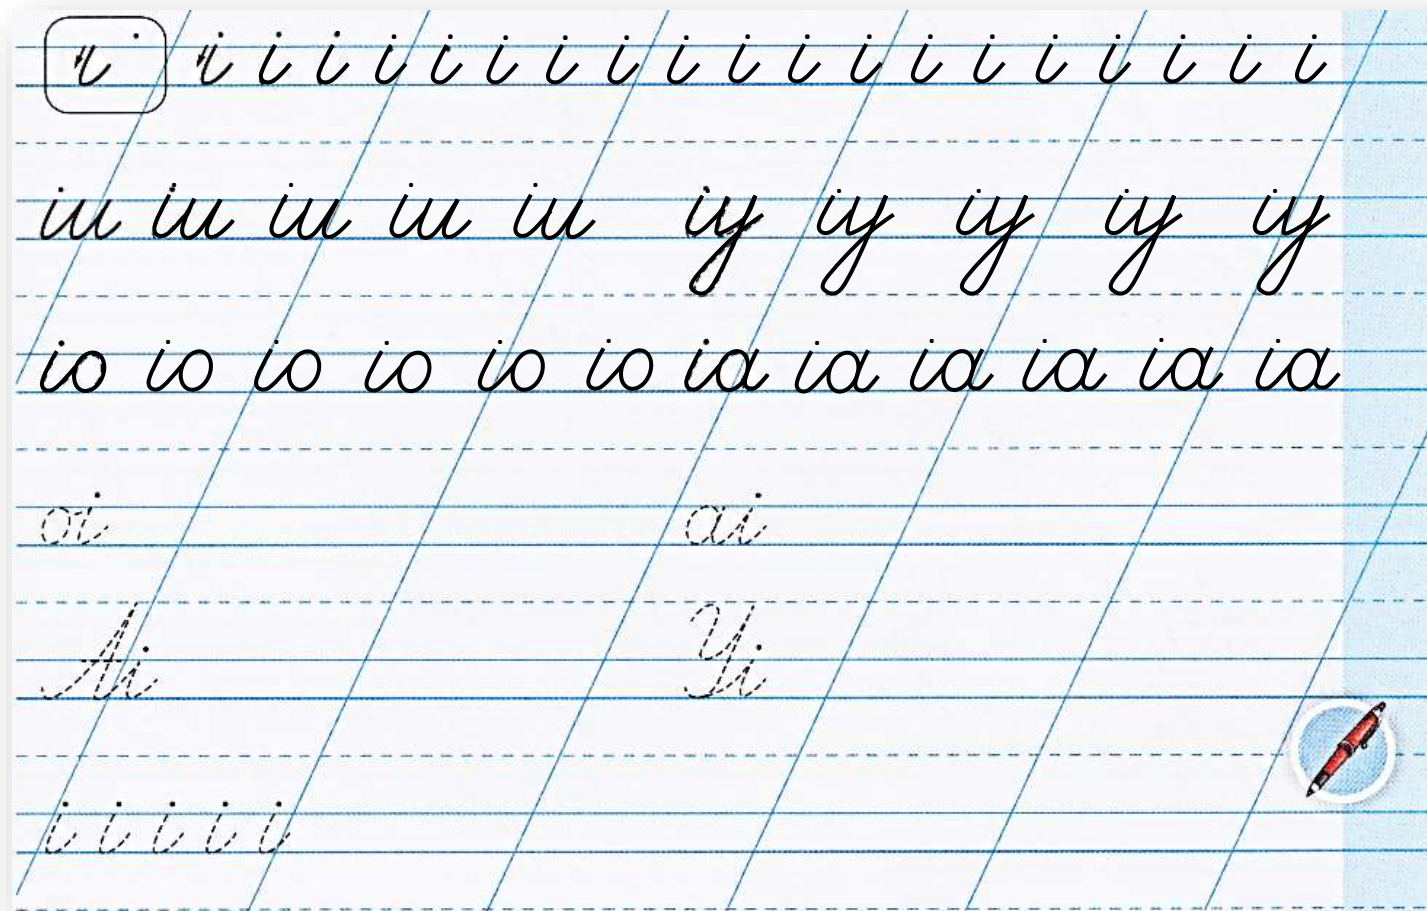 і і і і і і і і і і і і і і і і і і і і
іи іи іи іи іи іу іу іу іу іу
іо іо іо іо іо іо іа іа іа іа іа іа
оі аі
Аі Уі
і і і і і